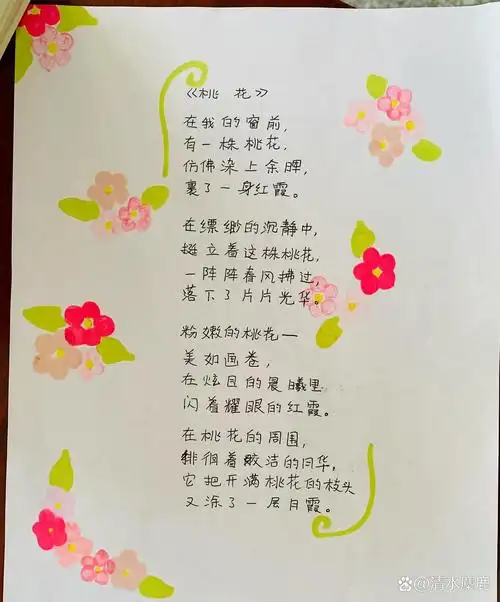 《桃 花》
在我的窗前,
有一株桃花,
仿佛染上余晖,
裹了一身红霞。
在缥缈的沉静中,
挺立着这株桃花,
一阵阵春风拂过,
落下了片片光华。
粉嫩的桃花一
美如画卷,
在炫目的晨曦里
闪着耀眼的红霞。
在桃花的周围,
徘徊着皎洁的月华,
它把开满桃花的枝头
又涂了一层月霞。
百家号@清水麋鹿